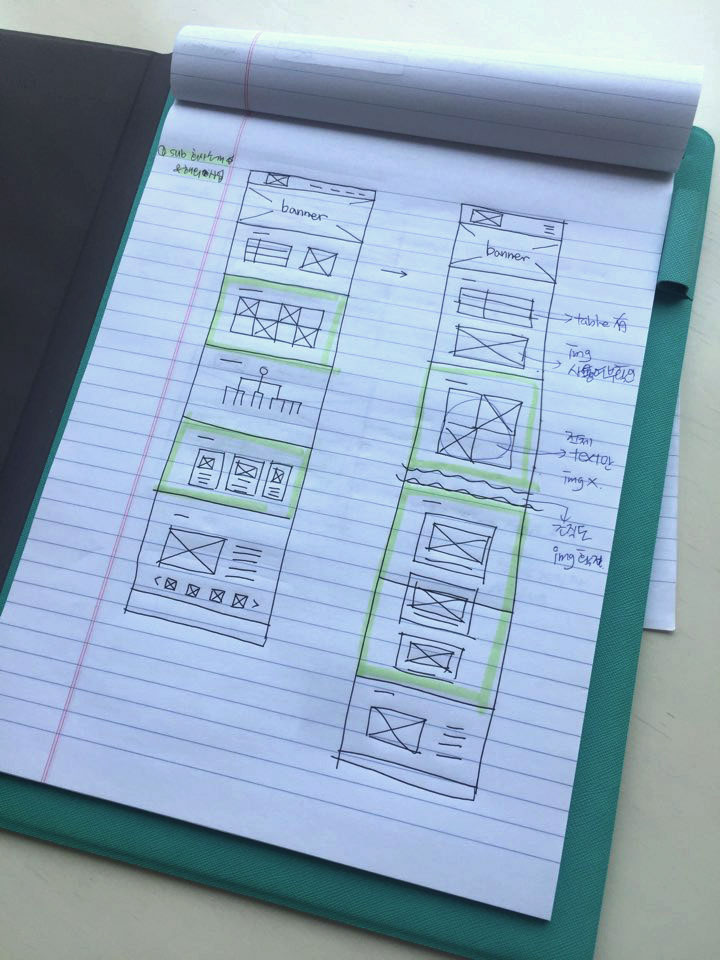 ① sub 회사소개
banner
banner
→ table
img
사용여부
전체
text만
img x.
조직도
img